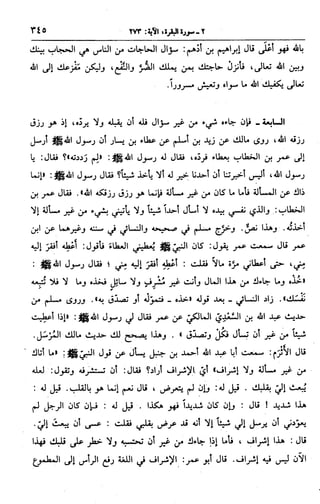 ٢ - سورة البقرة، الآية: ٢٧٣
٣٤٥
بالله فهو أعْلَى قال إبراهيم بن أدهم: سؤال الحاجات من الناس هي الحجاب بينك
وبين الله تعالى، فأنزلْ حاجتك بمن يملك الضُّرَّ والنَّفع، وليكن مَفْزعك إلى الله
تعالى يكفيك الله ما سواه وتعيش مسروراً.
السابعة - فإن جاءه شيء من غير سؤال فله أن يقبله ولا يرده، إذ هو رزق
رزقه الله، روى مالك عن زيد بن أسلم عن عطاء بن يسار أن رسول الله ﷺ أرسل
إلى عمر بن الخطاب بعطاء فردّه، فقال له رسول الله ﷺ: «لِم رددته»؟ فقال: يا
رسول الله، أليس أخبرتنا أن أحدنا خير له ألا يأخذ شيئاً؟ فقال رسول الله ﷺ: «إنما
ذاك عن المسألة فأما ما كان من غير مسألة فإنما هو رزق رزقكه الله». فقال عمر بن
الخطاب: والذي نفسي بيده لا أسأل أحداً شيئاً ولا يأتيني بشيء من غير مسألة إلا
أخذته. وهذا نصٌّ. وخرّج مسلم في صحيحه والنسائي في سننه وغيرهما عن ابن
عمر قال سمعت عمر يقول: كان النبيّ ﷺ يُعطيني العطاء فأقول: أعطِه أفقرَ إليه
مِني، حتى أعطاني مرّة مالاً فقلت: أعطِه أفقر إليه مِني؛ فقال رسول الله ﷺ:
«خُذْه وما جاءك من هذا المال وأنت غير مُشرِفٍ ولا سائِلٍ فخذه وما لا فلا تُتبِعه
نفسَك». زاد النسائي - بعد قوله «خذه - فتموّله أو تصدّق به». وروى مسلم من
حديث عبد الله بن السّعْدِيّ المالكيّ عن عمر فقال لي رسول الله ﷺ: «إذا أُعطِيت
شيئاً من غير أن تسأل فكُلْ وتصدّق». وهذا يصحح لك حديث مالك المُرْسَل.
قال الأثْرَم: سمعت أبا عبد الله أحمد بن حنبل يسأل عن قول النبيّ ﷺ: «ما أتاك
من غير مسألة ولا إشراف» أيّ الإشراف أراد؟ فقال: أن تستشرفه وتقول: لعله
يُبعث إليّ بقلبك. قيل له: وإن لم يتعرض، قال نعم إنما هو بالقلب. قيل له:
هذا شديد! قال: وإن كان شديداً فهو هكذا. قيل له: فإن كان الرجل لم
يعوّدني أن يرسل إلي شيئاً إلا أنه قد عرض بقلبي فقلت: عسى أن يبعث إليّ.
قال: هذا إشراف، فأما إذا جاءك من غير أن تحتسبه ولا خطر على قلبك فهذا
الآن ليس فيه إشراف. قال أبو عمر: الإشراف في اللغة رفع الرأس إلى المطموع